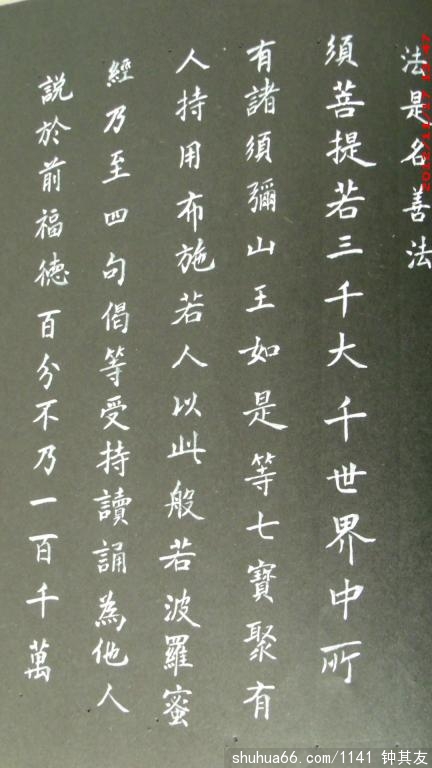 法是名善法
須菩提若三千大千世界中所
有諸須彌山王如是等七寶聚有
人持用布施若人以此般若波羅蜜
經乃至四句偈等受持讀誦為他人
説於前福德百分不乃一百千萬
shuhua66.com/1141 钟其友